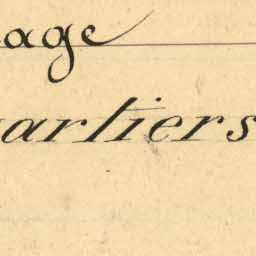 age
uartiers